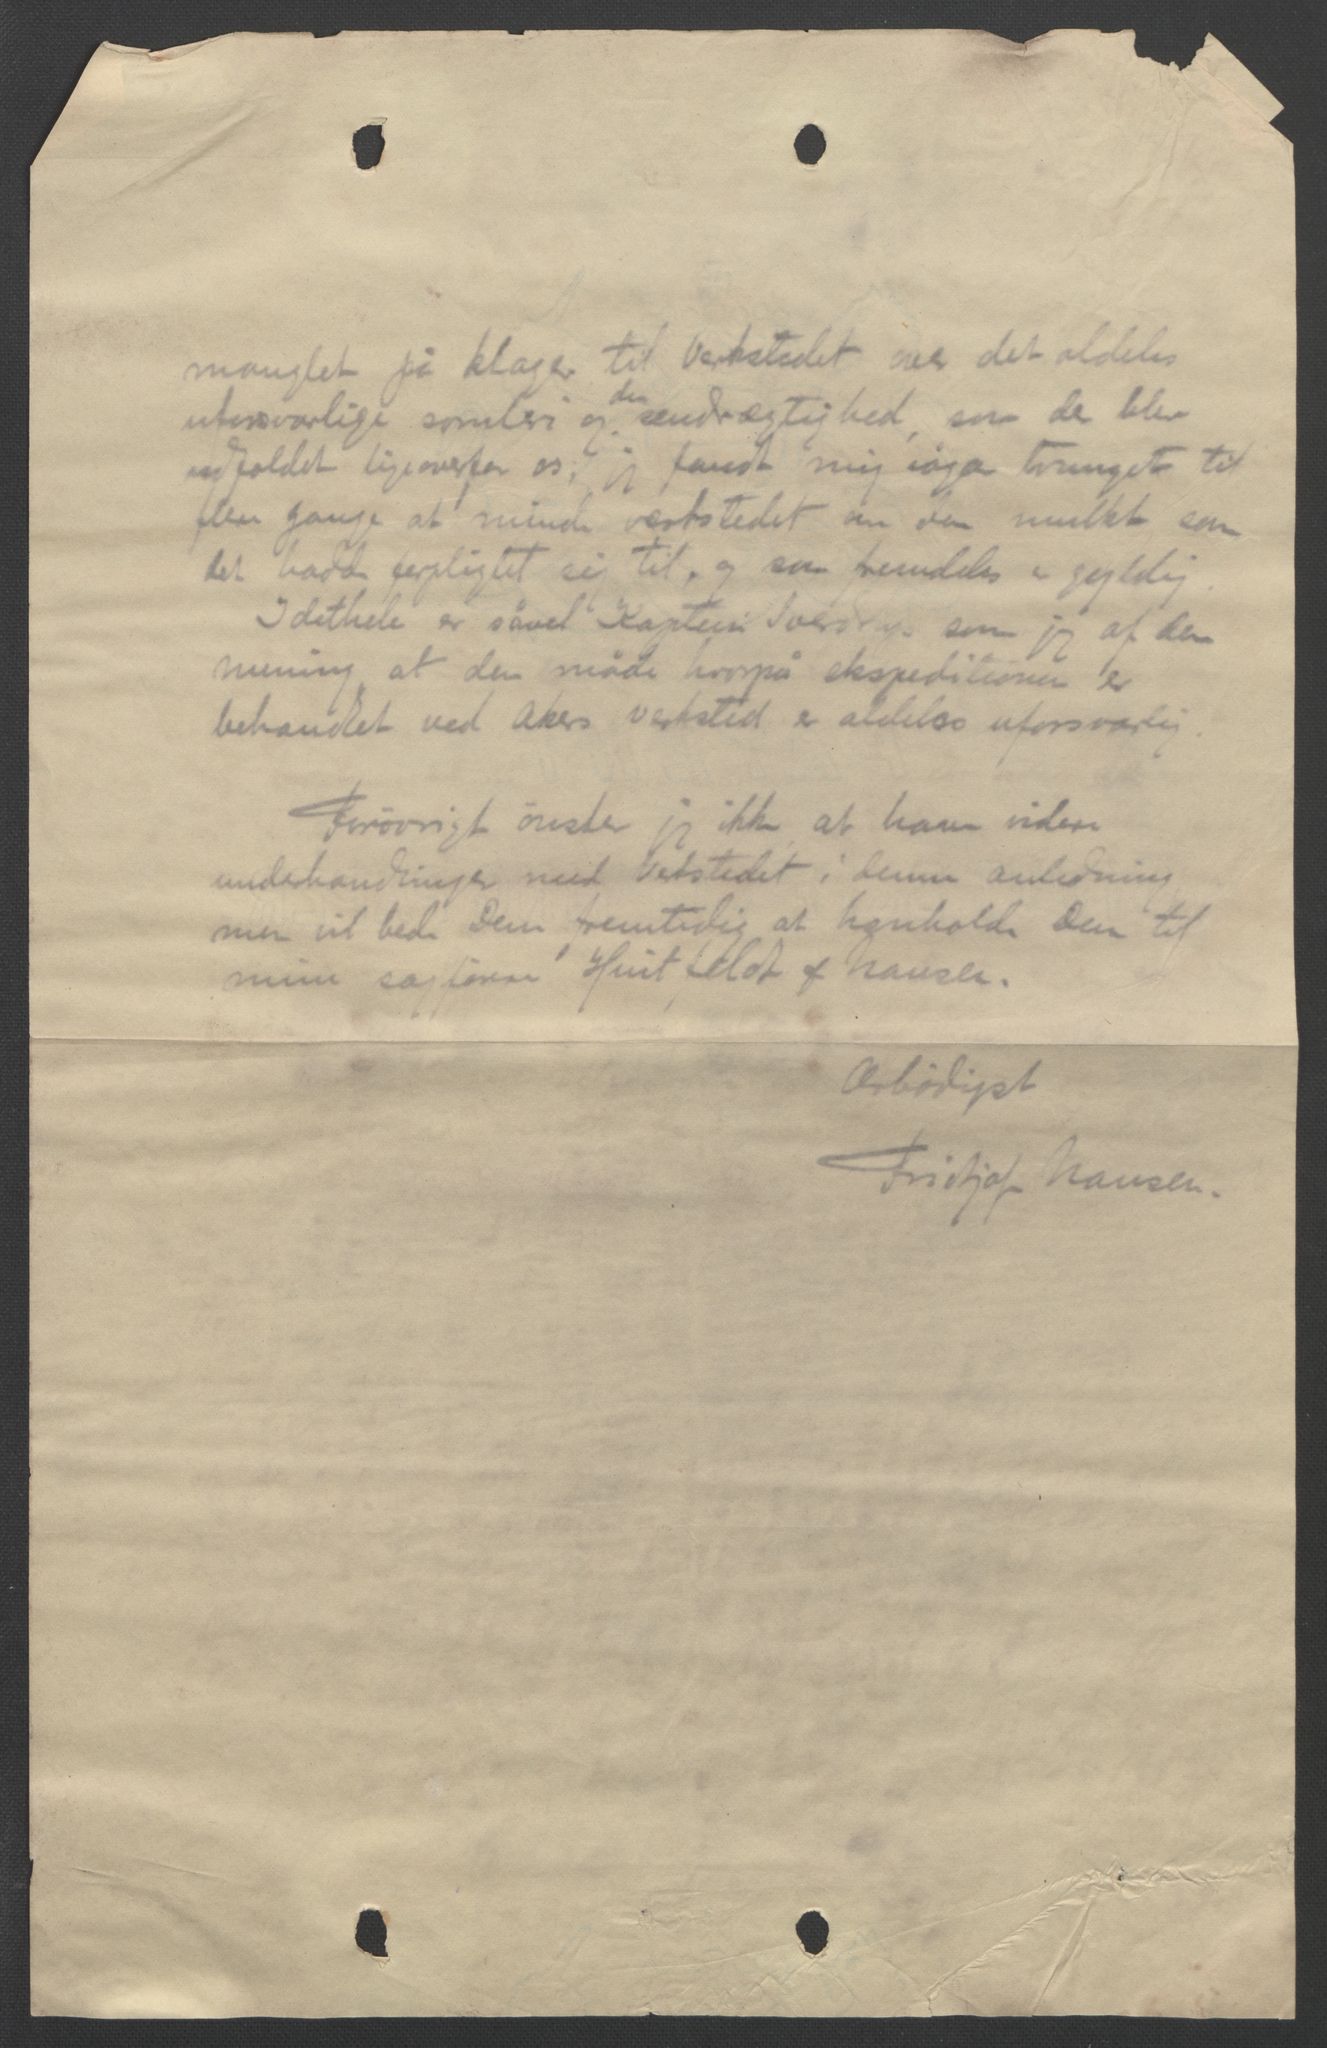 manglet på klager til Verkstedet over det aldeles
uforsvarlige somleri og den sendrægtighed, som der blev
udfoldet ligeoverfor os, jeg fandt mig også tvunget til
flere gange at minde verkstedet om den mulkt som
det hadde forpligtet sig til, og som fremdeles er gyldig.
Idethele er såvel Kaptein Sverdrup som jeg af den
mening at den måde hvorpå ekspeditionen er
behandlet ved Akers Verksted er aldeles uforsvarlig.
Forövrigt önsker jeg ikke at have videre
underhandlinger med Verkstedet i denne anledning
men vil bede Dem fremtidig at henholde Dem til
mine sagförere Huitfeldt & Nansen.
Ærbödigst
Fridtjof Nansen.